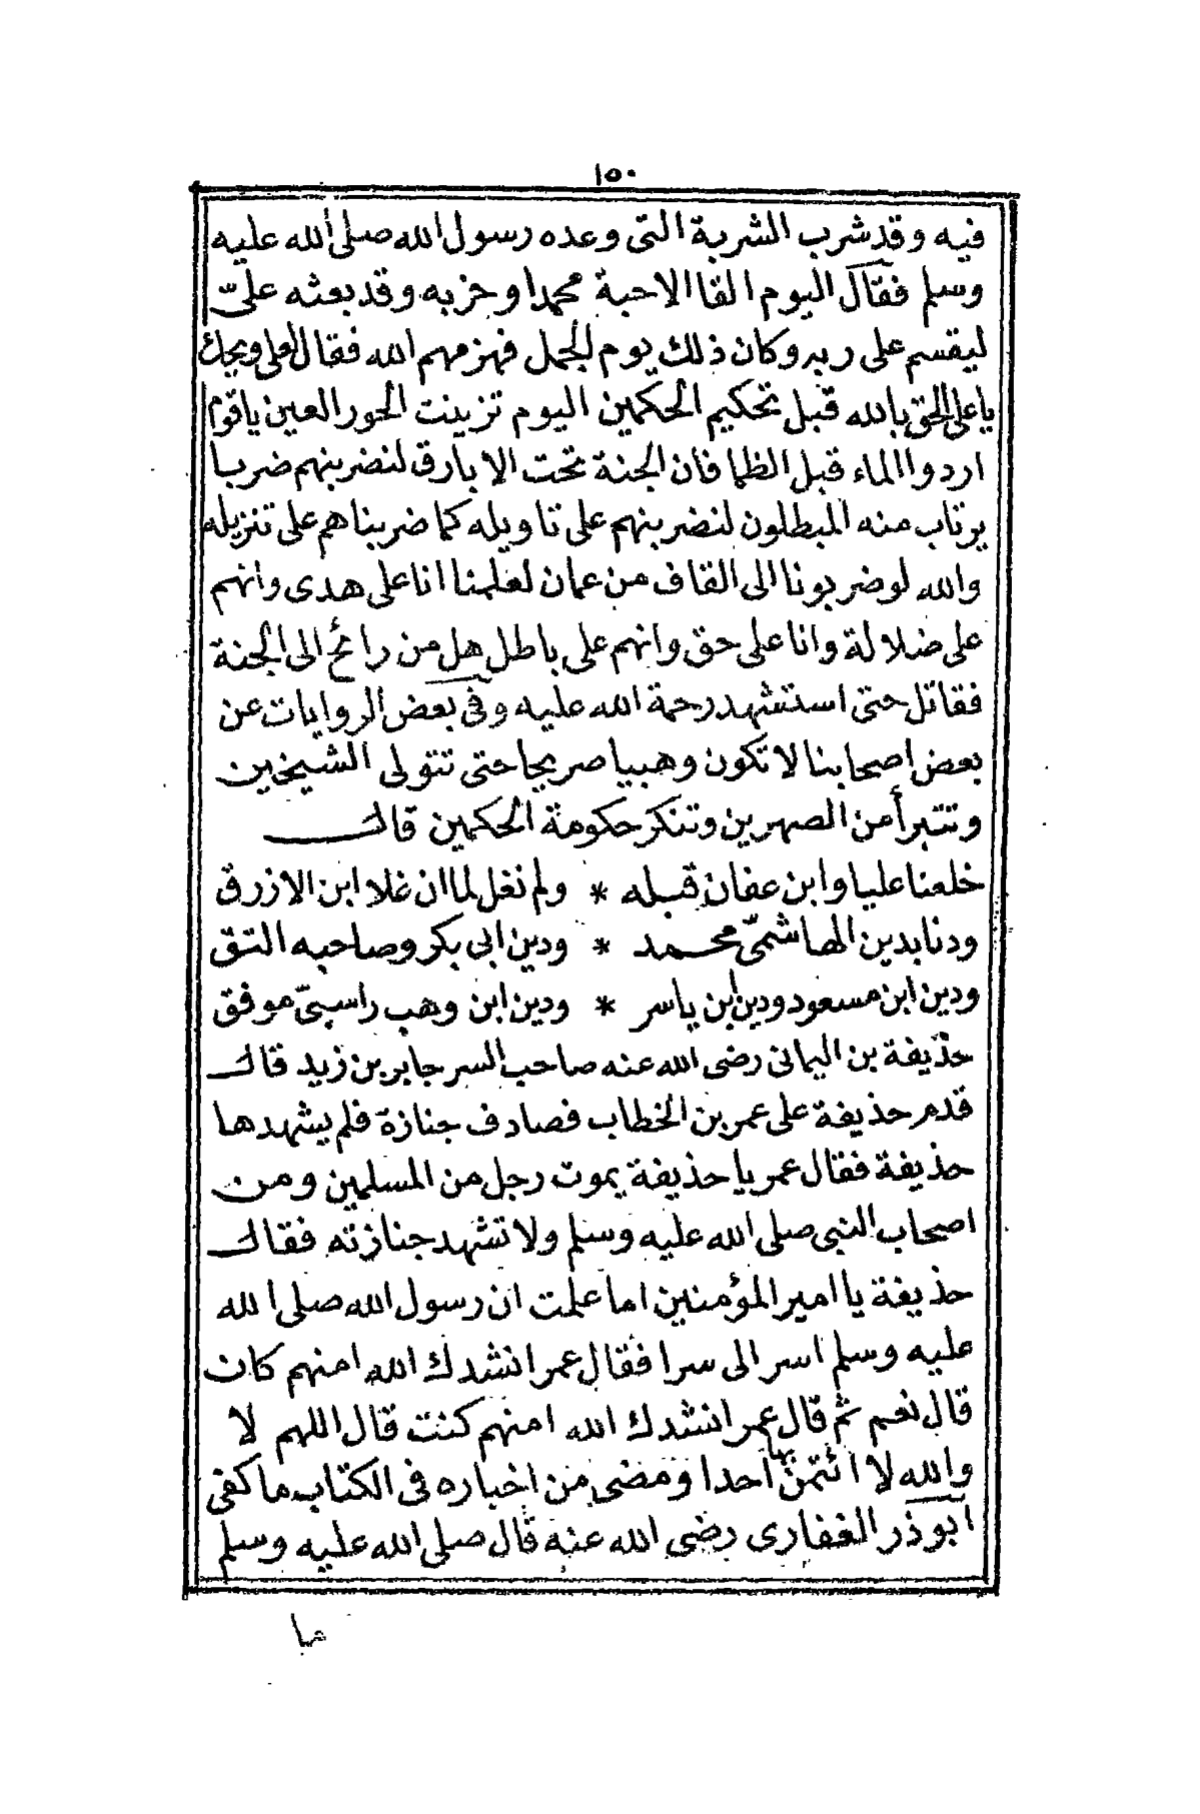 ١٥٠
فيه وقد شرب الشربة التى وعده رسول الله صلى الله عليه
وسلم فقال اليوم القا الاحبة محمدا وحزبه وقد بعثه علىّ
ليقسم على ربه وكان ذلك يوم الجمل فهزمهم الله فقال لعلى ويحك
يا على الحق بالله قبل تحكيم الحكمين اليوم تزينت الحور العين يا قوم
اردوا الماء قبل الظما فان الجنة تحت الابارق لنضربنهم ضربا
يرتاب منه المبطلون لنضربنهم على تاويله كما ضربناهم على تنزيله
والله لو ضربونا الى القاف من عمان لعلمنا انا على هدى وانهم
على ضلالة وانا على حق وانهم على باطل هل من رائح الى الجنة
فقاتل حتى استشهد رحمة الله عليه وفى بعض الروايات عن
بعض اصحابنا لا تكون وهبيا صريحا حتى تتولى الشيخين
وتتبرأ من الصهرين وتنكر حكومة الحكمين قال
خلعنا عليا وابن عفان قبله * ولم نغل لما ان غلا ابن الازرق
ودنا بدين الهاشمىّ محمد * ودين ابى بكر وصاحبه التقى
ودين ابن مسعود ودين ابن ياسر * ودين ابن وهب راسبىّ موفق
حذيفة بن اليمانى رضى الله عنه صاحب السر جابر بن زيد قال
قدم حذيفة على عمر بن الخطاب فصادف جنازة فلم يشهدها
حذيفة فقال عمر يا حذيفة يموت رجل من المسلمين ومن
اصحاب النبى صلى الله عليه وسلم ولا تشهد جنازته فقال
حذيفة يا امير المؤمنين اما علمت ان رسول الله صلى الله
عليه وسلم اسر الى سرا فقال عمر انشدك الله امنهم كان
قال نعم ثم قال عمر انشدك الله امنهم كنت قال اللهم لا
والله لا ائتمن بها احدا ومضى من اخباره فى الكتاب ما كفى
ابو ذر الغفارى رضى الله عنه قال صلى الله عليه وسلم
ما